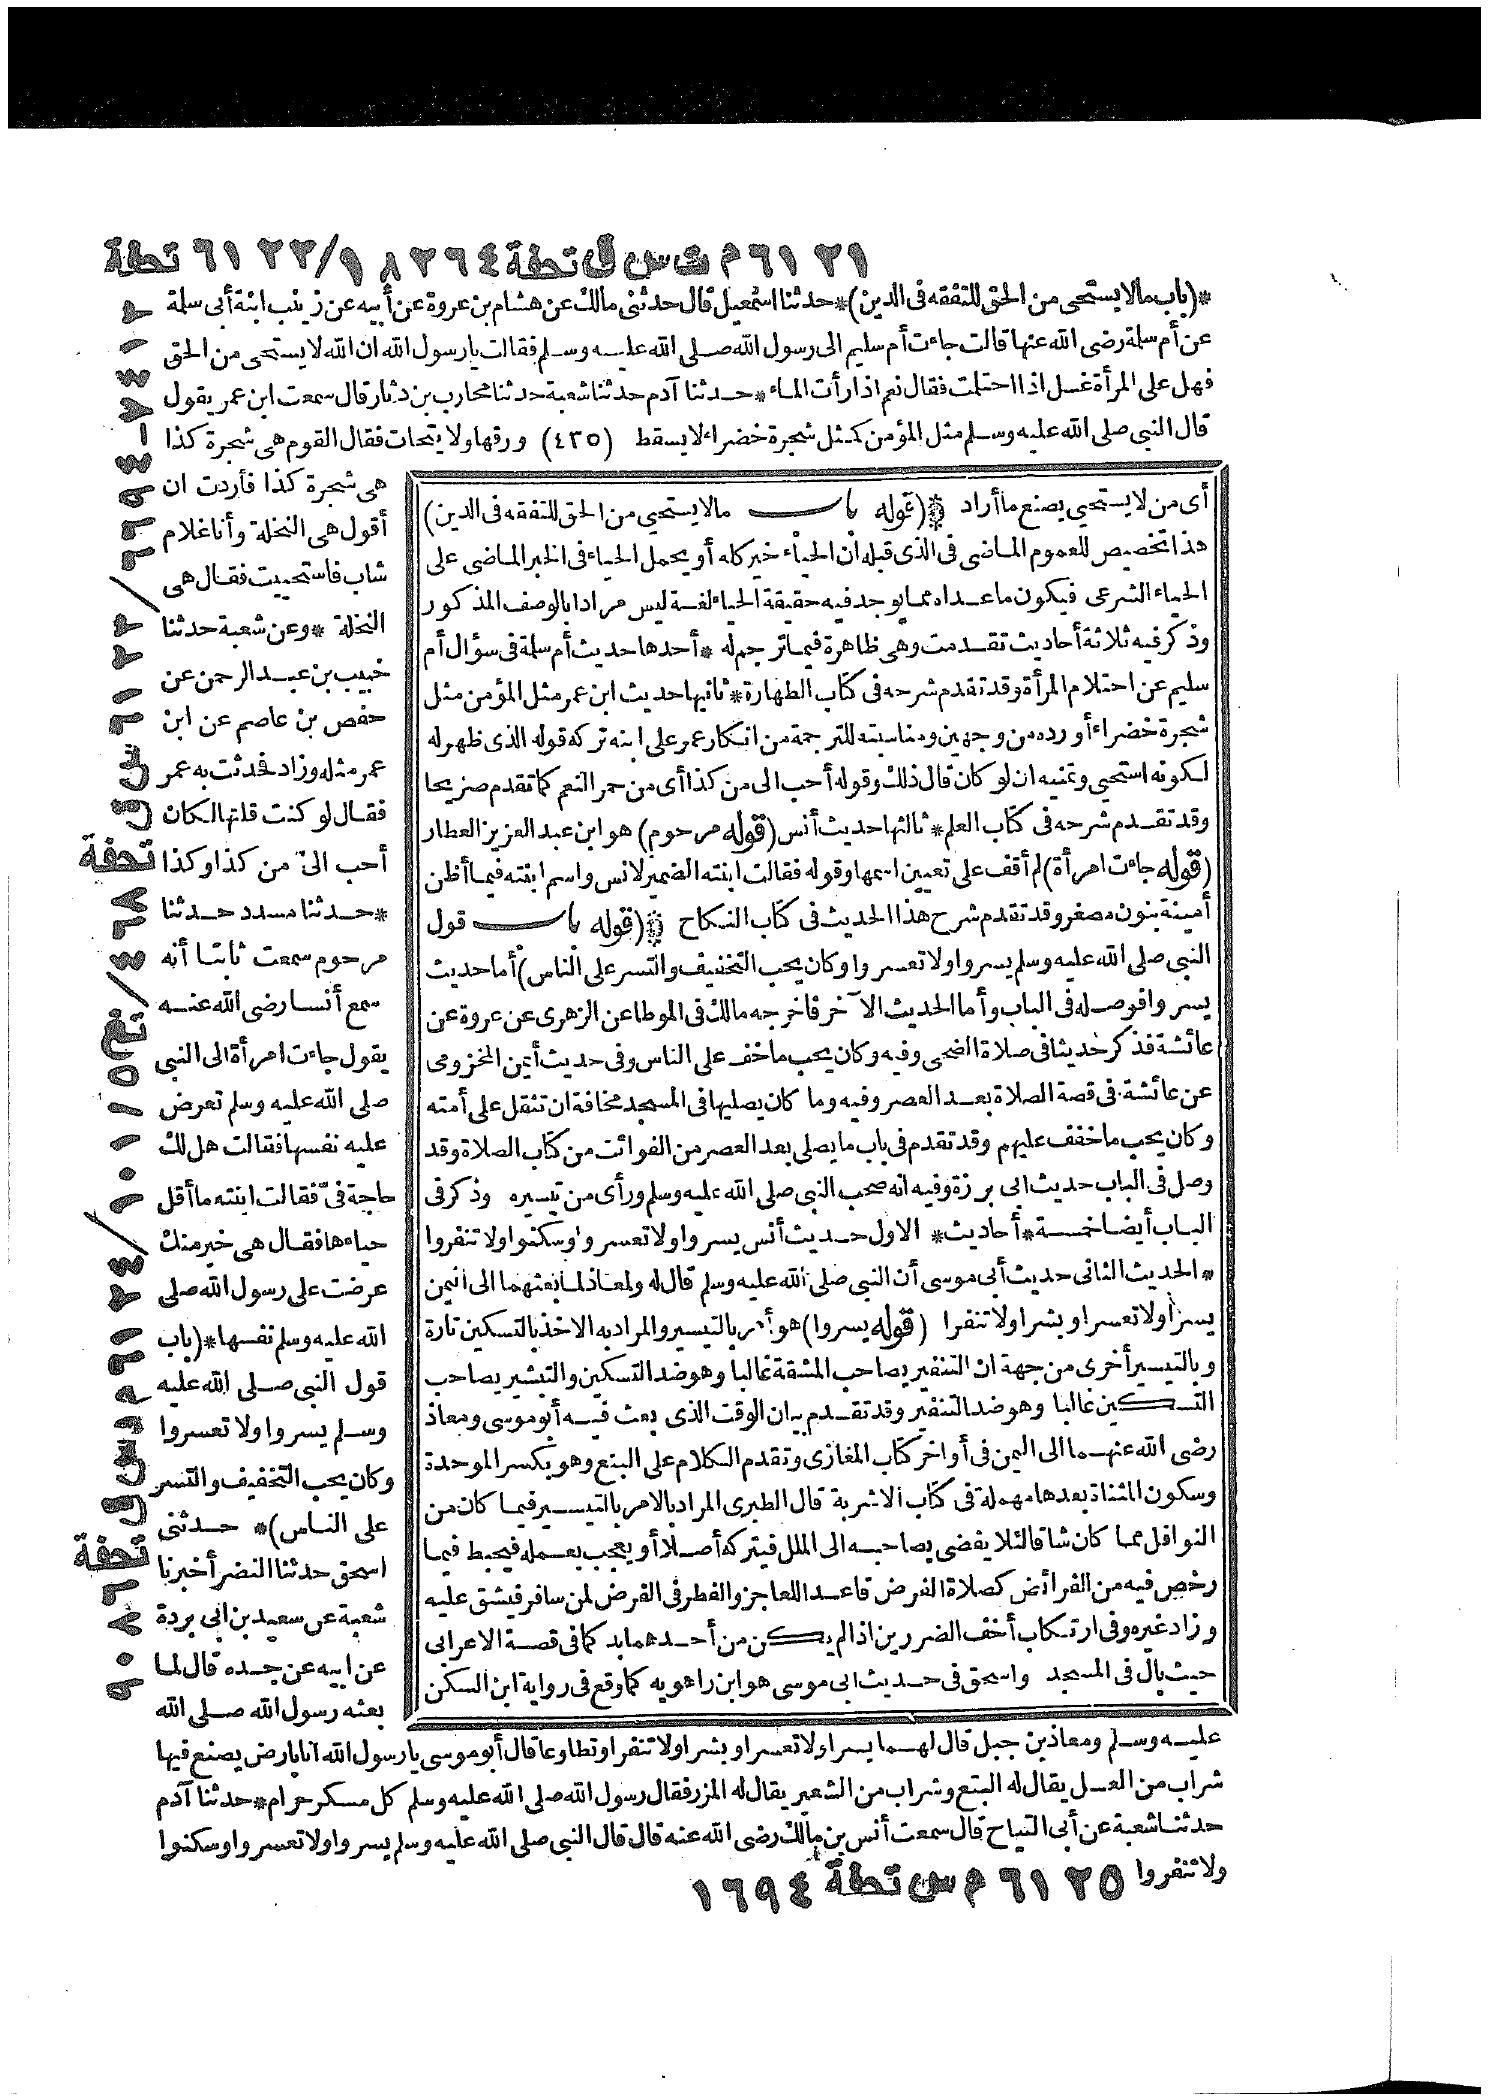 ٦١٢١ م ت س ق تحفة ١٨٢٦٤ / ٦١٢٢ تحفة
*(باب مالا يستحيى من الحق للتفقه فى الدين)* حدثنا اسمعيل قال حدثنى مالك عن هشام بن عروة عن أبيه عن زينب ابنة أبى سلمة
عن أم سلمة رضى الله عنها قالت جاءت أم سليم الى رسول الله صلى الله عليه وسلم فقالت يا رسول الله ان الله لا يستحيى من الحق
فهل على المرأة غسل اذا احتلمت فقال نعم اذا رأت الماء * حدثنا آدم حدثنا شعبة حدثنا محارب بن دثار قال سمعت ابن عمر يقول
قال النبى صلى الله عليه وسلم مثل المؤمن كمثل شجرة خضراء لا يسقط (٤٣٥) ورقها ولا يتحات فقال القوم هى شجرة كذا
هى شجرة كذا فأردت ان
أقول هى النخلة وأنا غلام
شاب فاستحييت فقال هى
النخلة * وعن شعبة حدثنا
خبيب بن عبد الرحمن عن
حفص بن عاصم عن ابن
عمر مثله وزاد فحدثت به عمر
فقال لو كنت قلتها لكان
أحب الىّ من كذا وكذا
* حدثنا مسدد حدثنا
مرحوم سمعت ثابتا أنه
سمع أنسا رضى الله عنه
يقول جاءت امرأة الى النبى
صلى الله عليه وسلم تعرض
عليه نفسها فقالت هل لك
حاجة فىّ فقالت ابنته ما أقل
حياءها فقال هى خير منك
عرضت على رسول الله صلى
الله عليه وسلم نفسها *(باب
قول النبى صلى الله عليه
وسلم يسروا ولا تعسروا
وكان يحب التخفيف والتسر
على الناس)* حدثنى
اسحق حدثنا النضر أخبرنا
شعبة عن سعيد بن ابى بردة
عن ابيه عن جده قال لما
بعثه رسول الله صلى الله
أى من لا يستحيى يصنع ما أراد * (قوله باب مالا يستحيى من الحق للتفقه فى الدين)
هذا تخصيص للعموم الماضى فى الذى قبله أن الحياء خير كله أو يحمل الحياء فى الخبر الماضى على
الحياء الشرعى فيكون ما عداه مما يوجد فيه حقيقة الحياء لغة ليس مرادا بالوصف المذكور
وذكر فيه ثلاثة أحاديث تقدمت وهى ظاهرة فيما ترجم له * أحدها حديث أم سلمة فى سؤال أم
سليم عن احتلام المرأة وقد تقدم شرحه فى كتاب الطهارة * ثانيها حديث ابن عمر مثل المؤمن مثل
شجرة خضراء أورده من وجهين ومناسبته للترجمة من انكار عمر على ابنه تركه قوله الذى ظهر له
لكونه استحيى وتمنيه ان لو كان قال ذلك وقوله أحب الى من كذا أى من حمر النعم كما تقدم صريحا
وقد تقدم شرحه فى كتاب العلم * ثالثها حديث أنس (قوله مرحوم) هو ابن عبد العزيز العطار
(قوله جاءت امرأة) لم أقف على تعيين اسمها وقوله فقالت ابنته الضمير لانس واسم ابنته فيما أظن
أمينة بنون مصغر وقد تقدم شرح هذا الحديث فى كتاب النكاح * (قوله باب قول
النبى صلى الله عليه وسلم يسروا ولا تعسروا وكان يحب التخفيف والتسر على الناس) أما حديث
يسروا فوصله فى الباب وأما الحديث الآخر فأخرجه مالك فى الموطا عن الزهرى عن عروة عن
عائشة فذكر حديثا فى صلاة الضحى وفيه وكان يحب ما خف على الناس وفى حديث أيمن المخزومى
عن عائشة فى قصة الصلاة بعد العصر وفيه وما كان يصليها فى المسجد مخافة ان تثقل على أمته
وكان يحب ما خفف عليهم وقد تقدم فى باب ما يصلى بعد العصر من الفوائت من كتاب الصلاة وقد
وصل فى الباب حديث ابى برزة وفيه انه صحب النبى صلى الله عليه وسلم ورأى من تيسيره وذكر فى
الباب أيضا خمسة * أحاديث * الاول حديث أنس يسروا ولا تعسروا وسكنوا ولا تنفروا
* الحديث الثانى حديث أبى موسى أن النبى صلى الله عليه وسلم قال له ولمعاذ لما بعثهما الى اليمن
يسرا ولا تعسرا وبشرا ولا تنفرا (قوله يسروا) هو أمر بالتيسير والمراد به الاخذ بالتسكين تارة
وبالتيسير أخرى من جهة ان التنفير يصاحب المشقة غالبا وهو ضد التسكين والتبشير يصاحب
التسكين غالبا وهو ضد التنفير وقد تقدم بيان الوقت الذى بعث فيه أبو موسى ومعاذ
رضى الله عنهما الى اليمن فى أواخر كتاب المغازى وتقدم الكلام على البتع وهو بكسر الموحدة
وسكون المثناة بعدها مهملة فى كتاب الاشربة قال الطبرى المراد بالامر بالتيسير فيما كان من
النوافل مما كان شاقا لئلا يفضى بصاحبه الى الملل فيتركه أصلا أو يعجب بعمله فيحبط فيما
رخص فيه من الفرائض كصلاة الفرض قاعدا للعاجز والفطر فى الفرض لمن سافر فيشق عليه
وزاد غيره وفى ارتكاب أخف الضررين اذا لم يكن من أحدهما بد كما فى قصة الاعرابى
حيث بال فى المسجد واسحق فى حديث ابى موسى هو ابن راهويه كما وقع فى رواية ابن السكن
عليه وسلم ومعاذ بن جبل قال لهما يسرا ولا تعسرا وبشرا ولا تنفرا وتطاوعا قال أبو موسى يا رسول الله انا بارض يصنع فيها
شراب من العسل يقال له البتع وشراب من الشعير يقال له المزر فقال رسول الله صلى الله عليه وسلم كل مسكر حرام * حدثنا آدم
حدثنا شعبة عن أبى التياح قال سمعت أنس بن مالك رضى الله عنه قال قال النبى صلى الله عليه وسلم يسروا ولا تعسروا وسكنوا
ولا تنفروا ٦١٢٥ م س تحفة ١٦٩٤